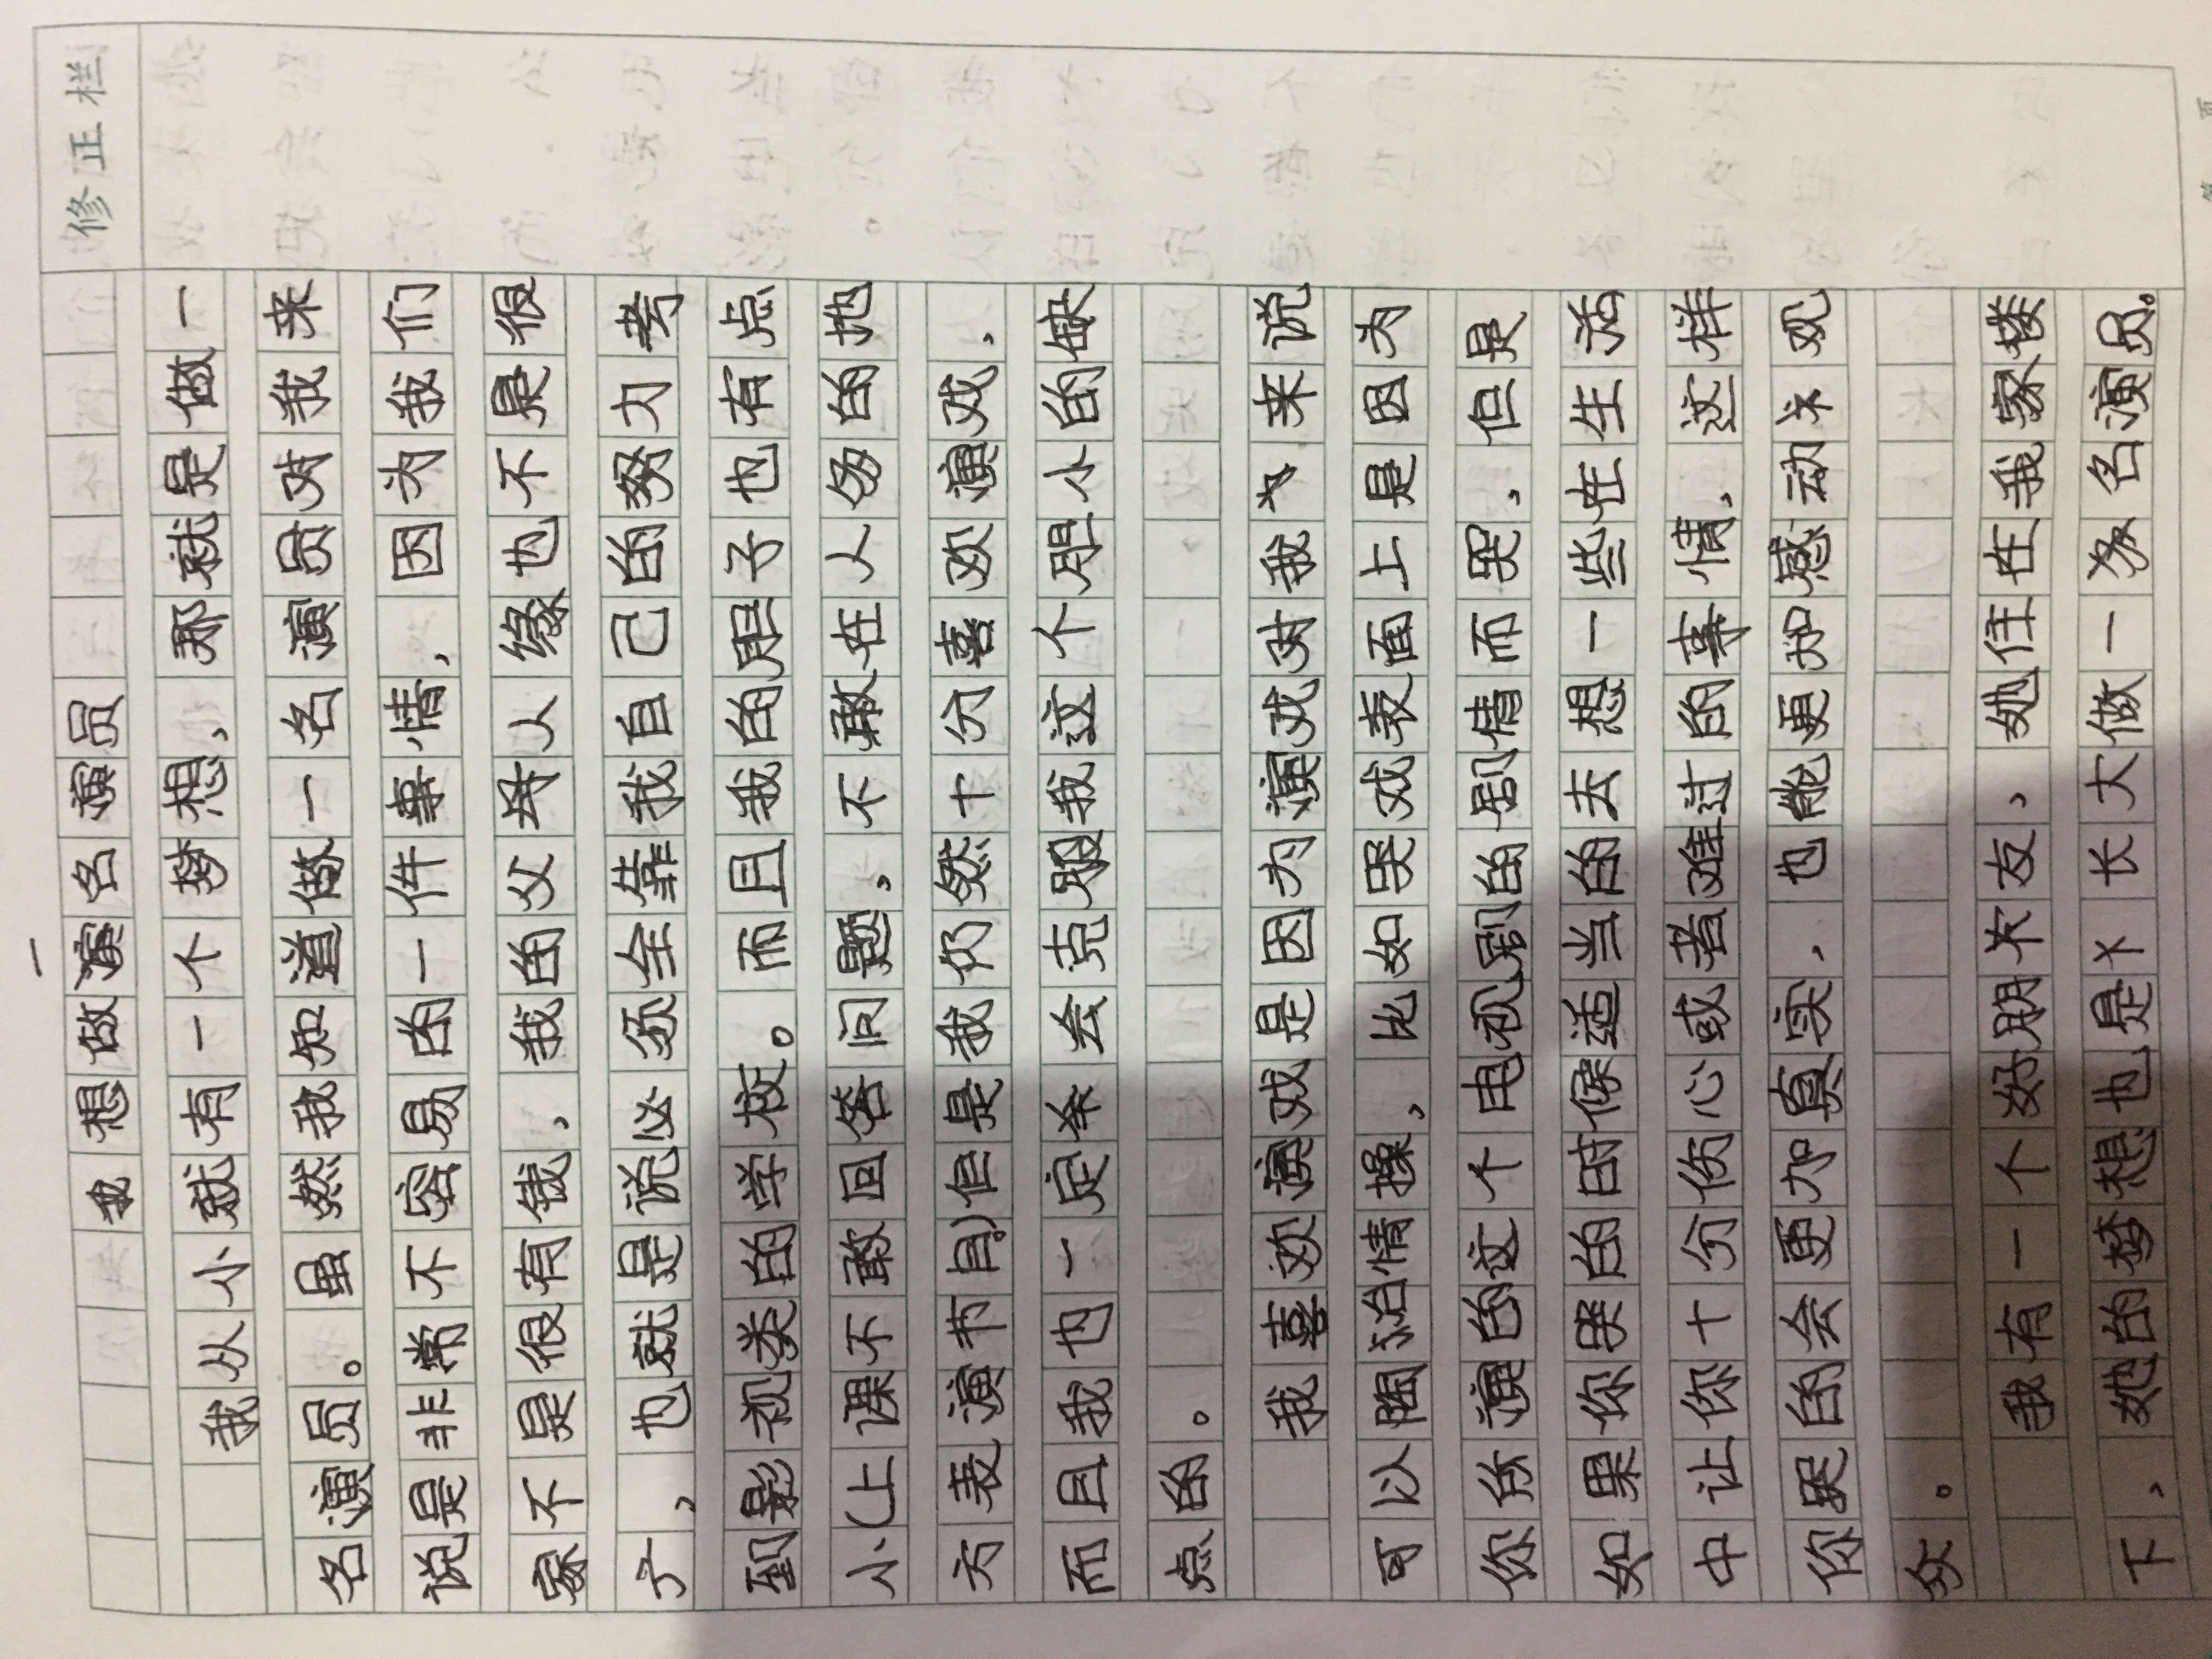 修正栏
一
我想做演名演员
我从小就有一个梦想，那就是做一
名演员。虽然我知道做一名演员对我来
说是非常不容易的一件事情，因为我们
家不是很有钱，我的父母人缘也不是很
广，也就是说必须全靠我自己的努力考
到影视类的学校。而且我的胆子也有点
小（上课不敢回答问题，不敢在人多的地
方表演节目）但是我仍然十分喜欢演戏，
而且我也一定会克服我这个胆小的缺
点的。
我喜欢演戏是因为演戏对我来说
可以陶冶情操，比如哭戏表面上是因为
你所演的这个电视剧的剧情而哭，但是
如果你哭的时候适当的去想一些在生活
中让你十分伤心或者难过的事情，这样
你哭的会更加真实，也能更加感动观
众。
我有一个好朋友，她住在我家楼
下，她的梦想也是长大做一名演员。
第 页